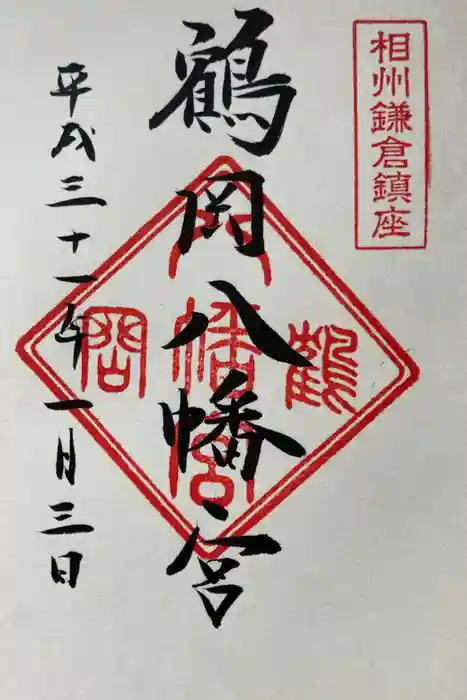 相州鎌倉鎮座
鶴岡八幡宮
鶴
八幡宮
岡
平成三十一年一月三日